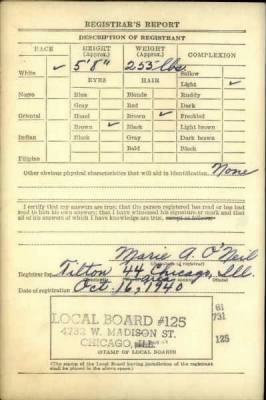 REGISTRAR'S REPORT
DESCRIPTION OF REGISTRANT
RACE HEIGHT (Approx.) WEIGHT (Approx.) COMPLEXION
White ✓ 5'8" 255 lbs. Sallow
EYES HAIR Light ✓
Negro Blue Blonde Ruddy
Gray Red Dark
Oriental Hazel Brown ✓ Freckled
Brown ✓ Black Light brown
Indian Black Gray Dark brown
Bald Black
Filipino
Other obvious physical characteristics that will aid in identification None
I certify that my answers are true; that the person registered has read or has had
read to him his own answers; that I have witnessed his signature or mark and that
all of his answers of which I have knowledge are true,
Marie A. O'Neil
(Signature of registrar)
Registrar for Tilton 44 Chicago, Ill.
Date of registration Oct. 16, 1940
LOCAL BOARD #125
4732 W. MADISON ST.
CHICAGO, ILL.
(STAMP OF LOCAL BOARD)
61
731
125
(The stamp of the Local Board having jurisdiction of the registrant
shall be placed in the above space.)